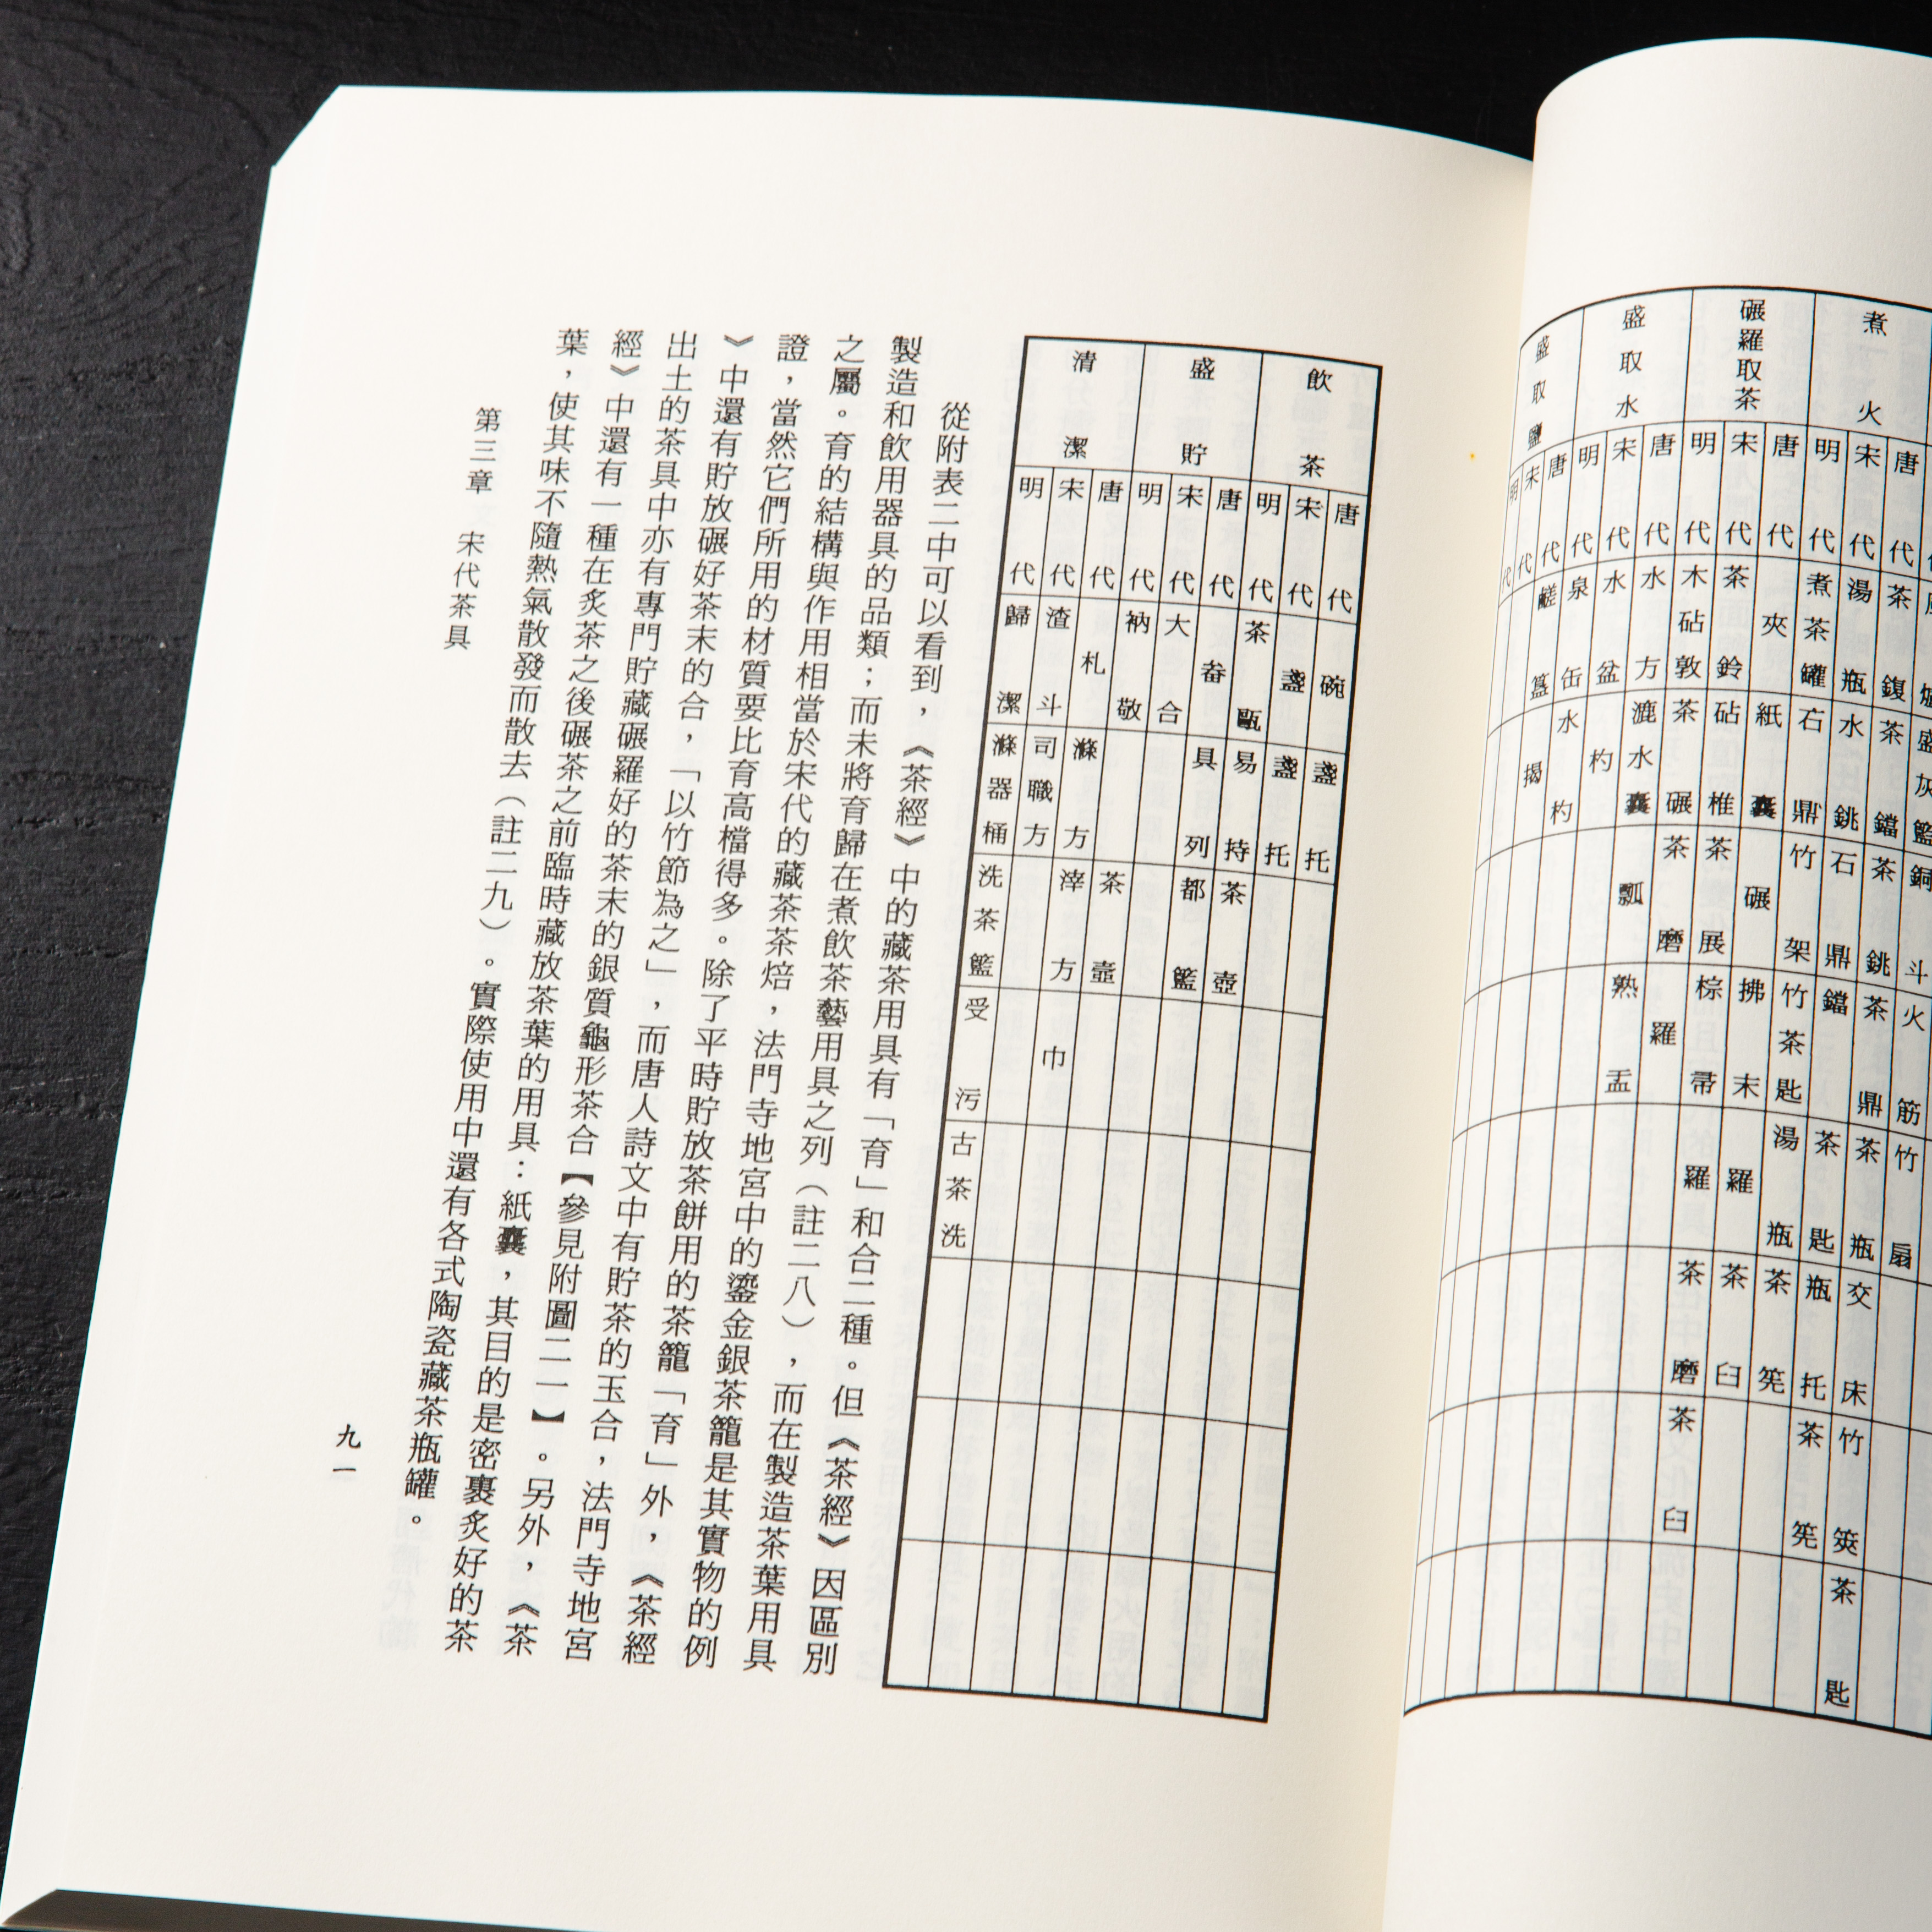 爐 盛灰籃 銅斗 火筋 竹扇
煮火
唐代 茶鍑 茶鐺 茶銚 茶鼎 茶瓶 交床 竹筴 茶匙
宋代 湯瓶 水銚 石鼎 鐺 茶匙 瓶托 茶筅
明代 煮茶罐 石鼎 竹架 竹茶匙 湯瓶 茶筅
碾羅取茶
唐代 夾 紙囊 碾 拂末 羅 茶臼
宋代 茶鈴 砧椎 茶展 棕帚 羅 茶磨 茶臼
明代 木砧敦 茶碾 茶磨 羅
盛取水
唐代 水方 漉水囊 瓢 熟盂
宋代 水盆 杓
明代 泉缶 水杓
盛取鹽
唐代 鹺簋 揭
宋代
明代
飲茶
唐代 碗 盞托
宋代 盞 盞托
明代 茶甌 易持 茶壺
盛貯
唐代 畚 具列 都籃
宋代 大合
明代 衲敬 茶壺
清潔
唐代 札 滌方 滓方 巾
宋代 渣斗 司職方
明代 歸潔 滌器桶 洗茶籃 受污 古茶洗
從附表二中可以看到，《茶經》中的藏茶用具有「育」和合二種。但《茶經》因區別
製造和飲用器具的品類；而未將育歸在煮飲茶藝用具之列（註二八），而在製造茶葉用具
之屬。育的結構與作用相當於宋代的藏茶茶焙，法門寺地宮中的鎏金銀茶籠是其實物的例
證，當然它們所用的材質要比育高檔得多。除了平時貯放茶餅用的茶籠「育」外，《茶經
》中還有貯放碾好茶末的合，「以竹節為之」，而唐人詩文中有貯茶的玉合，法門寺地宮
出土的茶具中亦有專門貯藏碾羅好的茶末的銀質龜形茶合【參見附圖二一】。另外，《茶
經》中還有一種在炙茶之後碾茶之前臨時藏放茶葉的用具：紙囊，其目的是密裹炙好的茶
葉，使其味不隨熱氣散發而散去（註二九）。實際使用中還有各式陶瓷藏茶瓶罐。
第三章　宋代茶具
九一